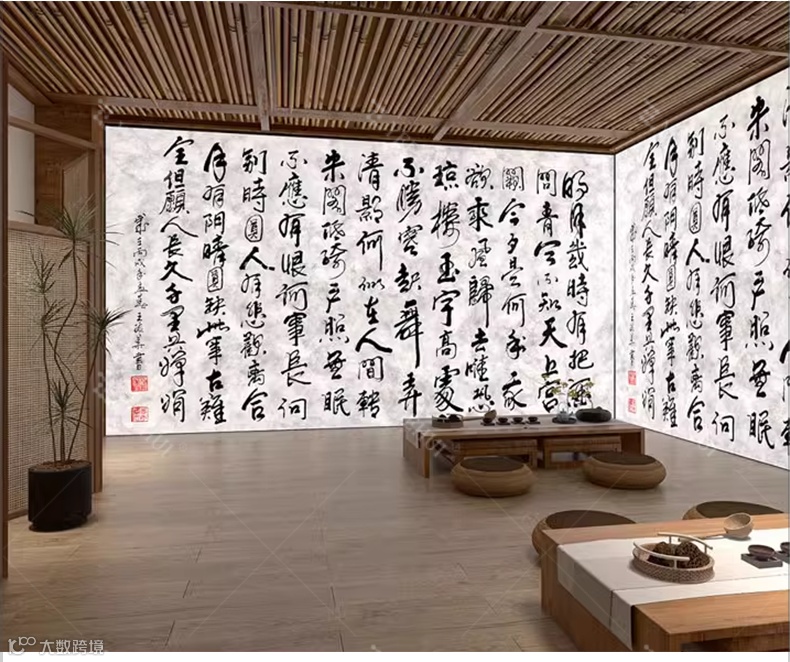 明月幾時有把酒
問青天不知天上宫
闕今夕是何年我
欲乘風歸去唯恐
瓊樓玉宇高處
不勝寒起舞弄
清影何似在人間轉
朱閣低綺戶照無眠
不應有恨何事長向
別時圓人有悲歡離合
月有阴晴圓缺此事古難
全但願人長久千里共嬋娟
朱閣低綺戶照無眠
不應有恨何事長向
別時圓人有悲歡離合
月有阴晴圓缺此事古難
全但願人長久千里共嬋娟
大数跨境